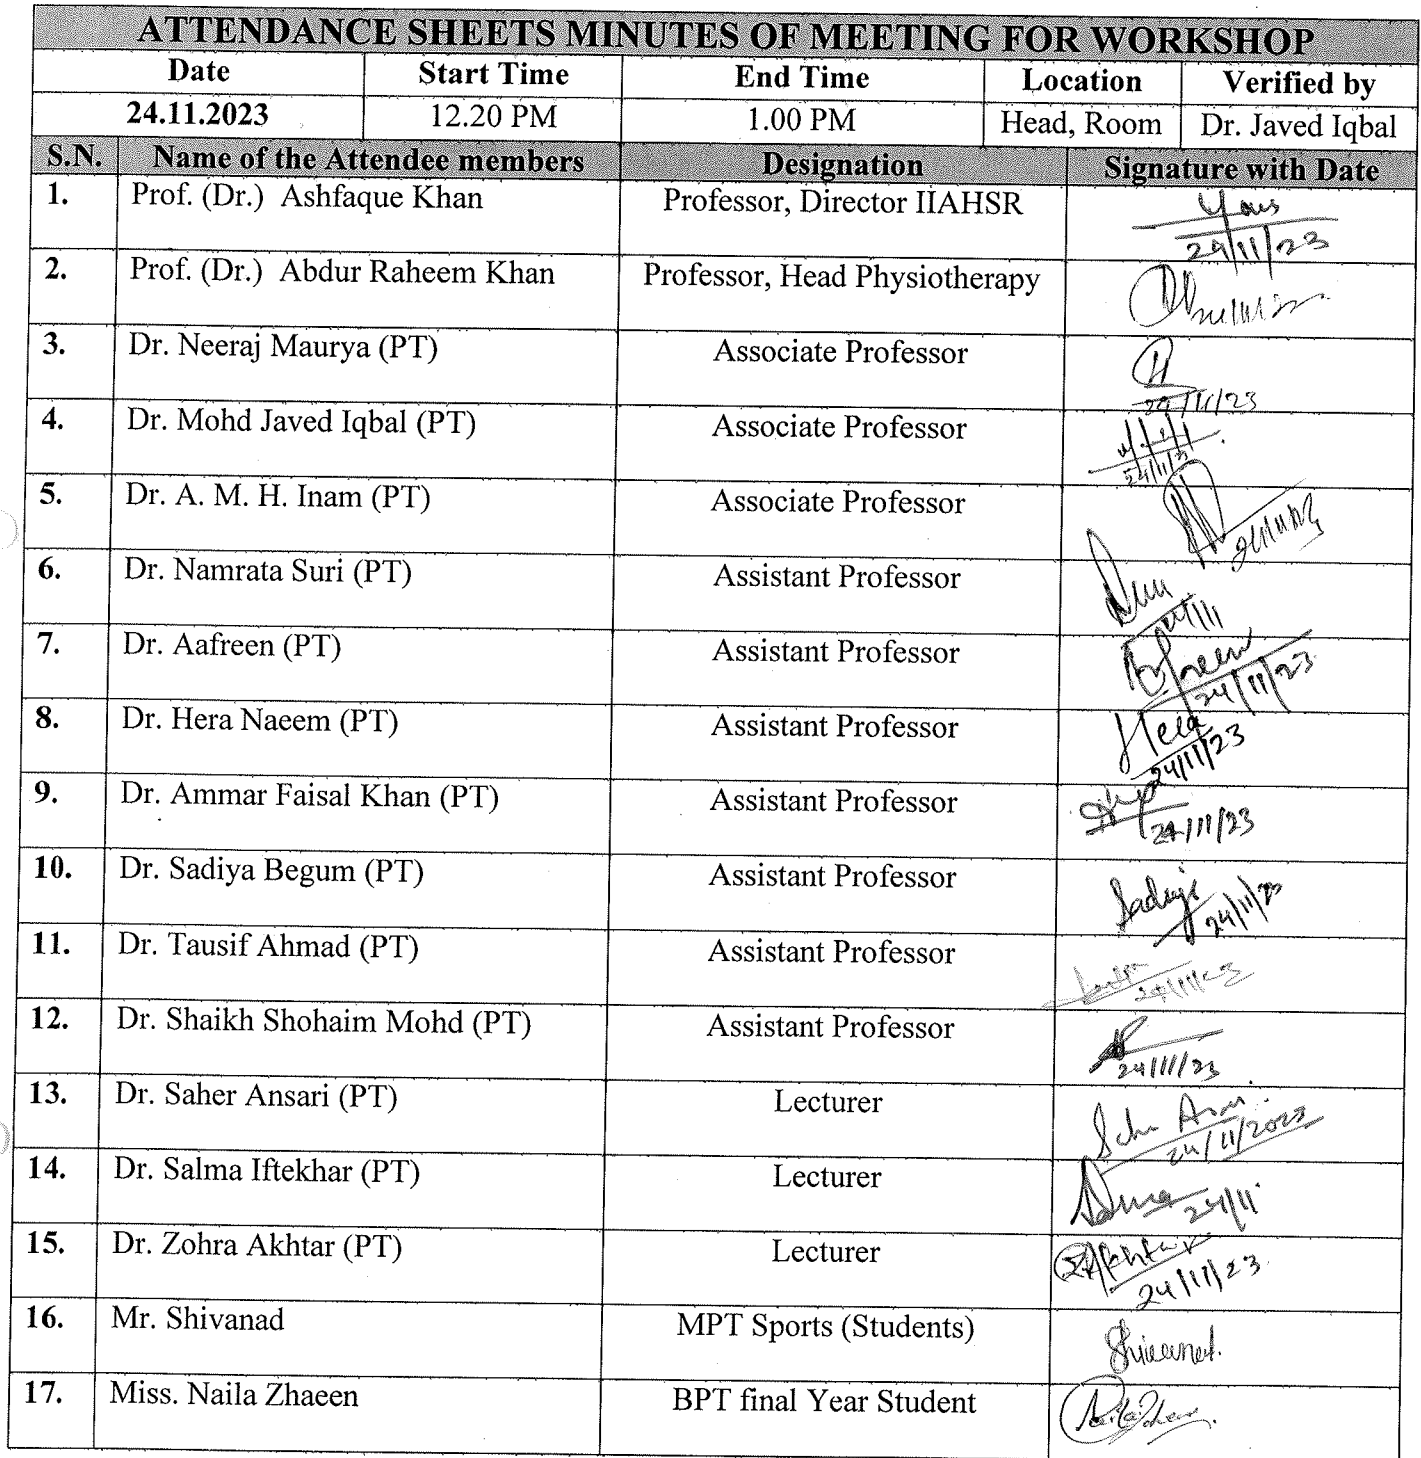 ATTENDANCE SHEETS MINUTES OF MEETING FOR WORKSHOP
Date Start Time End Time Location Verified by
24.11.2023 12.20 PM 1.00 PM Head, Room Dr. Javed Iqbal
S.N. Name of the Attendee members Designation Signature with Date
1. Prof. (Dr.) Ashfaque Khan Professor, Director IIAHSR
24/11/23
2. Prof. (Dr.) Abdur Raheem Khan Professor, Head Physiotherapy
3. Dr. Neeraj Maurya (PT) Associate Professor
24/11/23
4. Dr. Mohd Javed Iqbal (PT) Associate Professor
5. Dr. A. M. H. Inam (PT) Associate Professor
6. Dr. Namrata Suri (PT) Assistant Professor
7. Dr. Aafreen (PT) Assistant Professor
24/11/23
8. Dr. Hera Naeem (PT) Assistant Professor Hera
24/11/23
9. Dr. Ammar Faisal Khan (PT) Assistant Professor
24/11/23
10. Dr. Sadiya Begum (PT) Assistant Professor Sadiya
24/11/23
11. Dr. Tausif Ahmad (PT) Assistant Professor
24/11/23
12. Dr. Shaikh Shohaim Mohd (PT) Assistant Professor
24/11/23
13. Dr. Saher Ansari (PT) Lecturer
24/11/2023
14. Dr. Salma Iftekhar (PT) Lecturer
24/11
15. Dr. Zohra Akhtar (PT) Lecturer
24/11/23
16. Mr. Shivanad MPT Sports (Students)
17. Miss. Naila Zhaeen BPT final Year Student